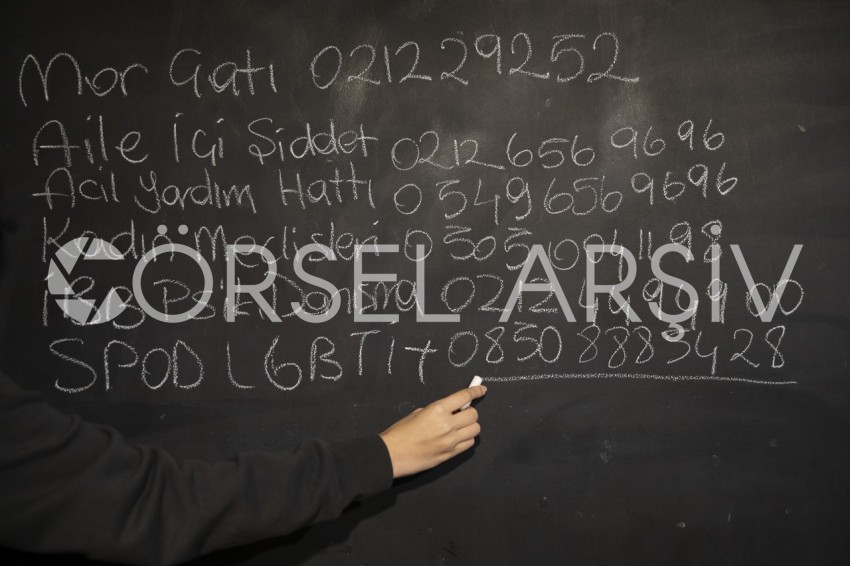 Mor Çatı 0212 292 52
Aile İçi Şiddet 0212 656 96 96
Acil Yardım Hattı 0 549 656 96 96
Kadın Meclisleri
GÖRSEL ARŞİV
SPOD LGBTİ+ 0850 888 54 28